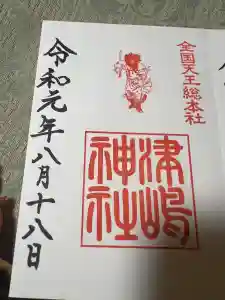 全国天王総本社
津嶋
神社
令和元年八月十八日